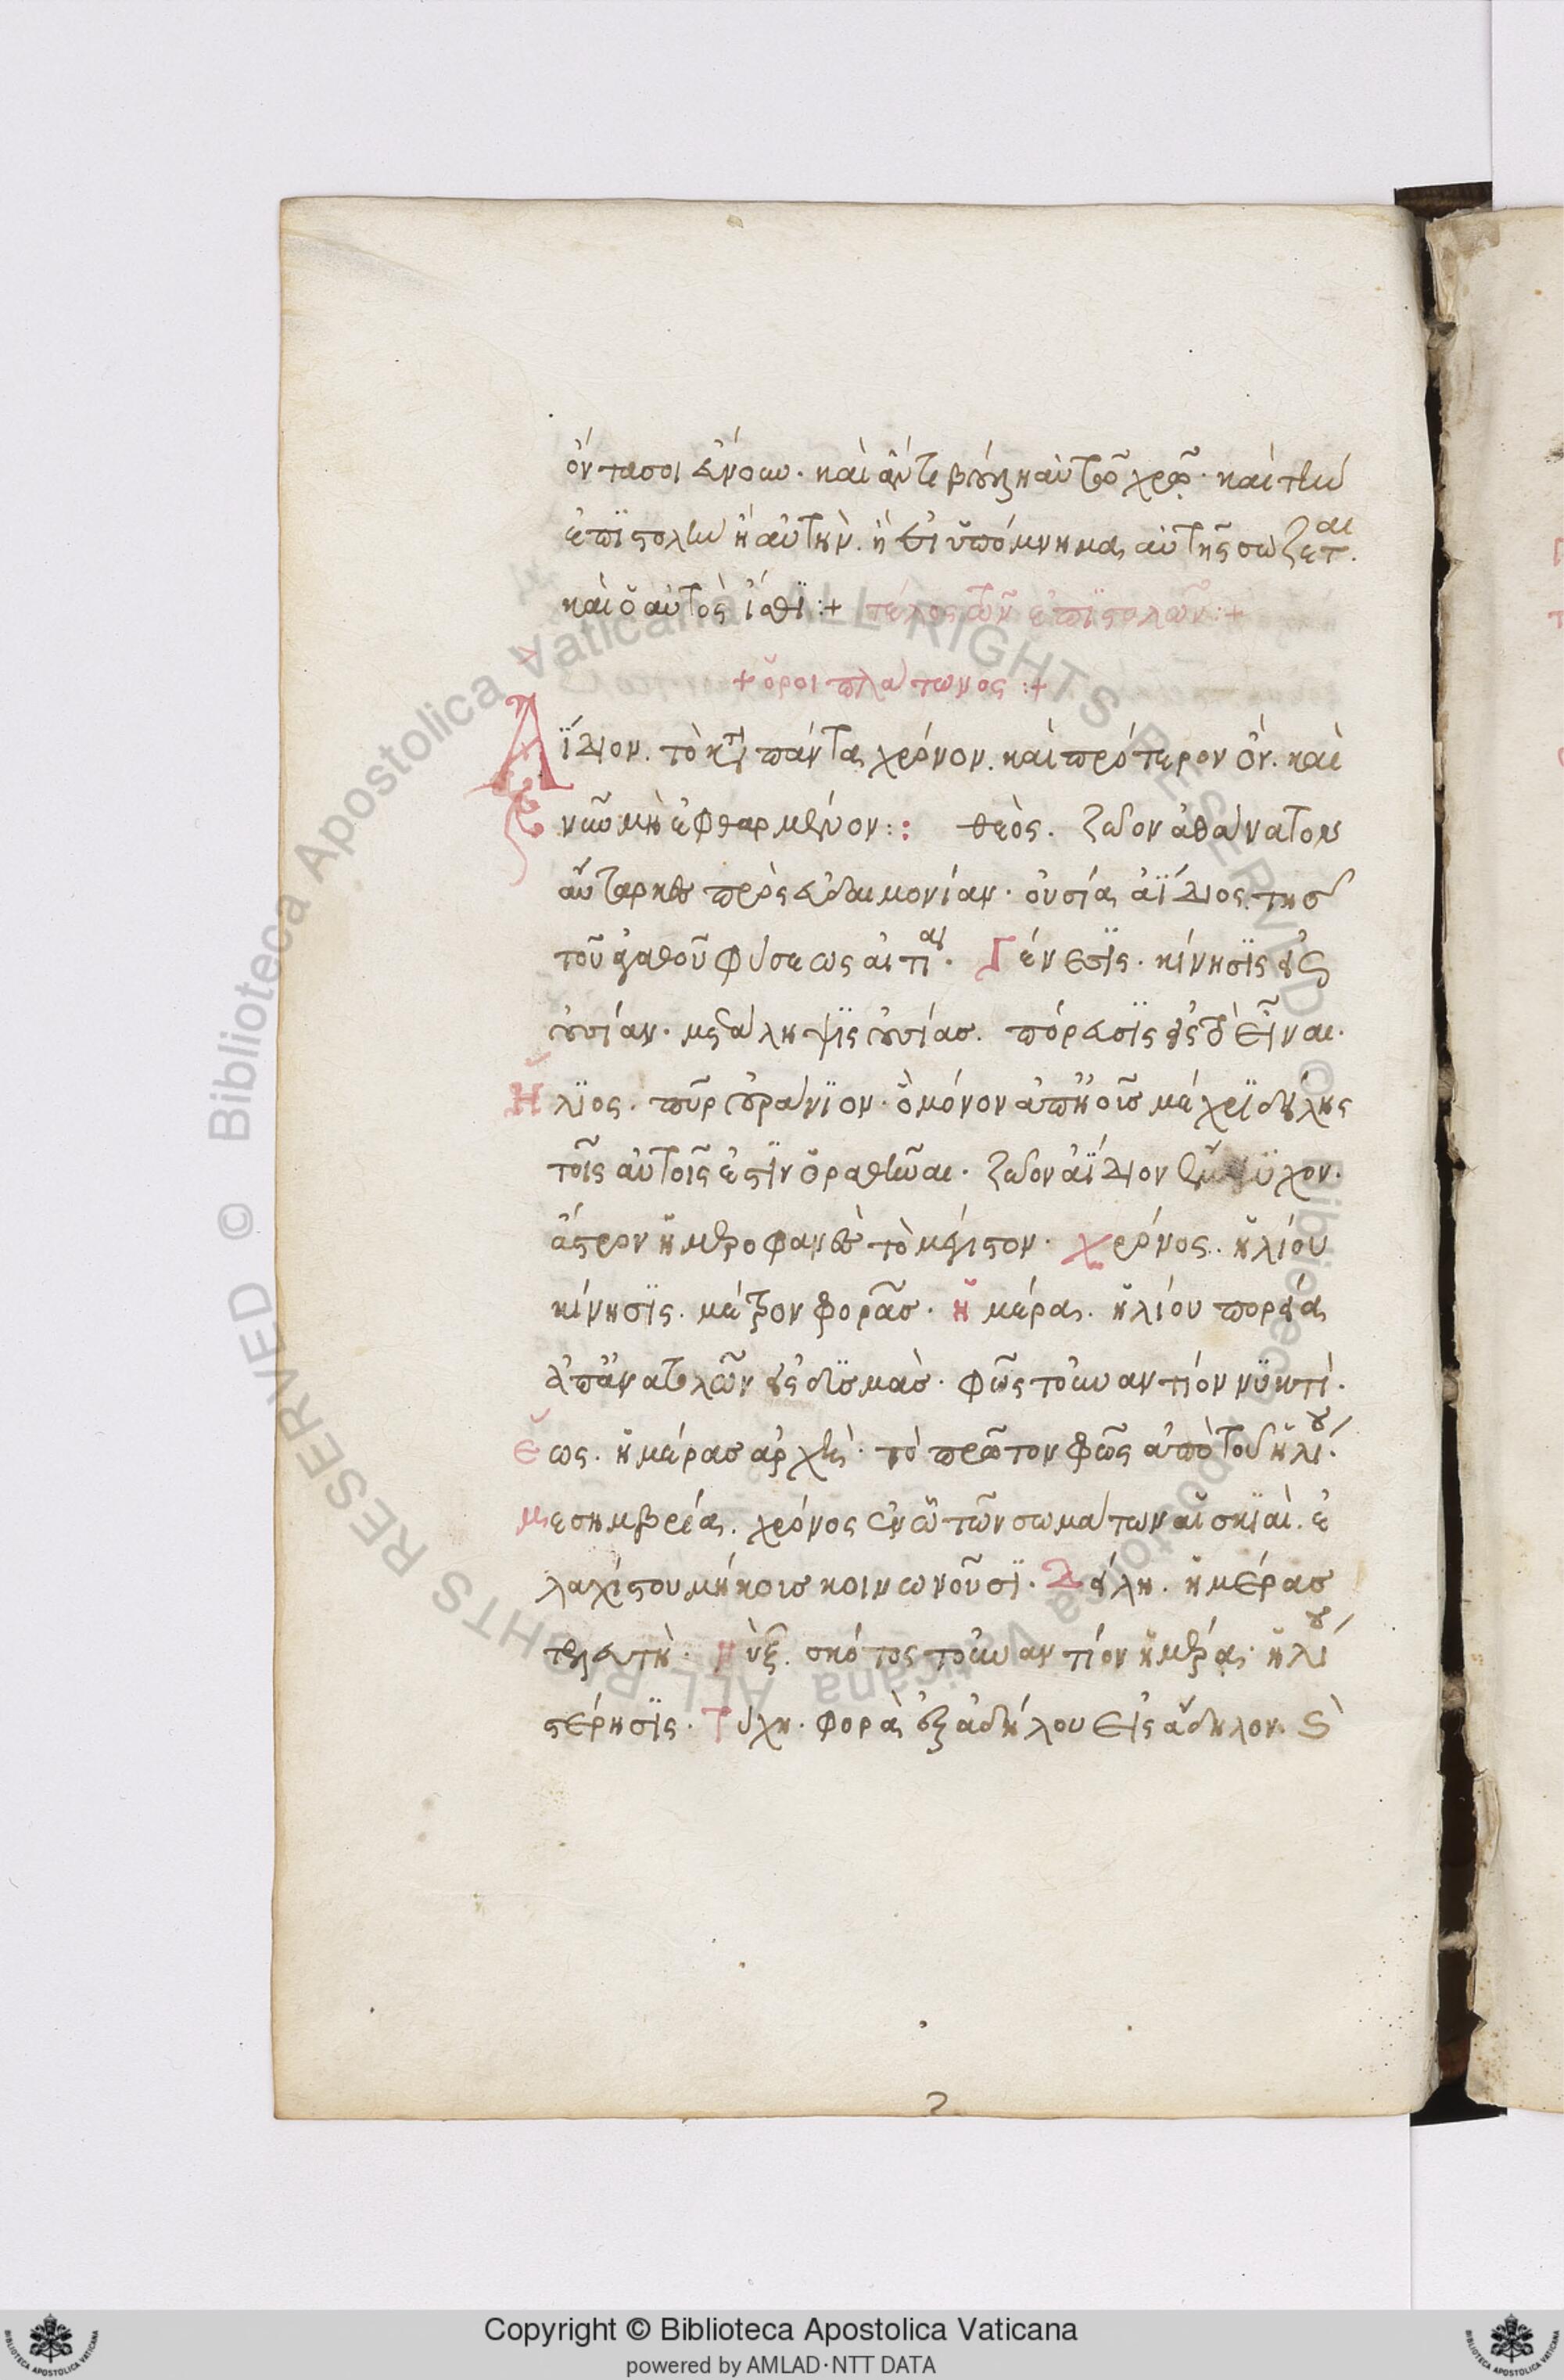 όντασοι εὔνουν. καὶ αὐτῷ βούλη καὐτῷ χρῶ. καὶ τὴν
ἐπιστολὴν ἢ αὐτὴν. ἢ εἰ ὑπόμνημα αὐτῆς σώζεται.
καὶ ὁ αὐτὸς ἴσθι :+ τέλος τῶν ἐπιστολῶν :+
+ ὅροι πλάτωνος :+
Ἀΐδιον. τὸ κατὰ πάντα χρόνον. καὶ πρότερον ὄν. καὶ
νῦν μὴ ἐφθαρμένον : : θεὸς. ζῶον ἀθάνατον
αὔταρκες πρὸς εὐδαιμονίαν. οὐσία ἀΐδιος. τῆς
τοῦ ἀγαθοῦ φύσεως αἰτία. Γένεσις. κίνησις εἰς
οὐσίαν. μετάληψις οὐσίας. πόρευσις εἰς τὸ εἶναι.
Ἥλιος. πῦρ οὐράνιον. ὃ μόνον ἀπ' ἠοῦς μέχρι δείλης
τοῖς αὐτοῖς ἐστὶν ὁραθῆναι. ζῶον ἀΐδιον ἔμψυχον.
ἄστρον ἡμεροφανὲς τὸ μέγιστον. χρόνος. ἡλίου
κίνησις. μέτρον φορᾶς. ἡμέρα. ἡλίου πορεία
ἀπ' ἀνατολῶν εἰς δϊσμὰς. φῶς τὸ ἐναντίον νυκτὶ.
ἕως. ἡμέρας ἀρχὴ. τὸ πρῶτον φῶς ἀπὸ τοῦ ἡλίου.
μεσημβρία. χρόνος ἐν ᾧ τῶν σωμάτων αἱ σκιαὶ. ἐ
λαχίστου μήκους κοινωνοῦσι. Δείλη. ἡμέρας
τελευτὴ. νὺξ. σκότος τὸ ἐναντίον ἡμέρα. ἡλίου
στέρησις. Τύχη. φορὰ ἐξ ἀδήλου εἰς ἄδηλον. καὶ
Copyright © Biblioteca Apostolica Vaticana
powered by AMLAD·NTT DATA
© Biblioteca Apostolica Vaticana ALL RIGHTS RESERVED